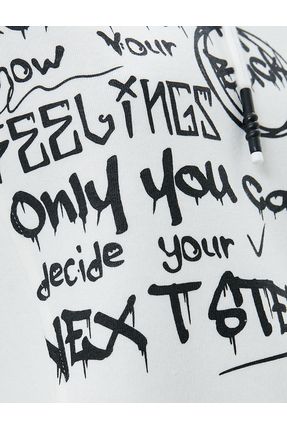 now your
FEELiNGS
only you
decide your
NEXT STE